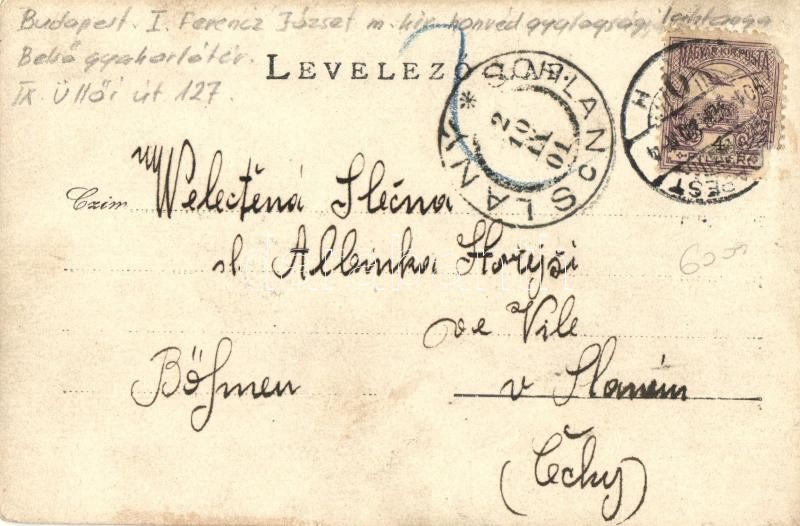 Budapest. I. Ferencz József m. kir. honvéd gyalogsági laktanya
Belső gyakorlótér.
IX. Üllői út 127.
LEVELEZŐ
SCHLAN SLANÝ
2
10
IX
01
MAGYAR KIR. POSTA
PEST
Czim
Welectěná Slečna
sl. Albinka Hořejší
600
ve Vile
Böhmen
v Slaném
(Čechy)